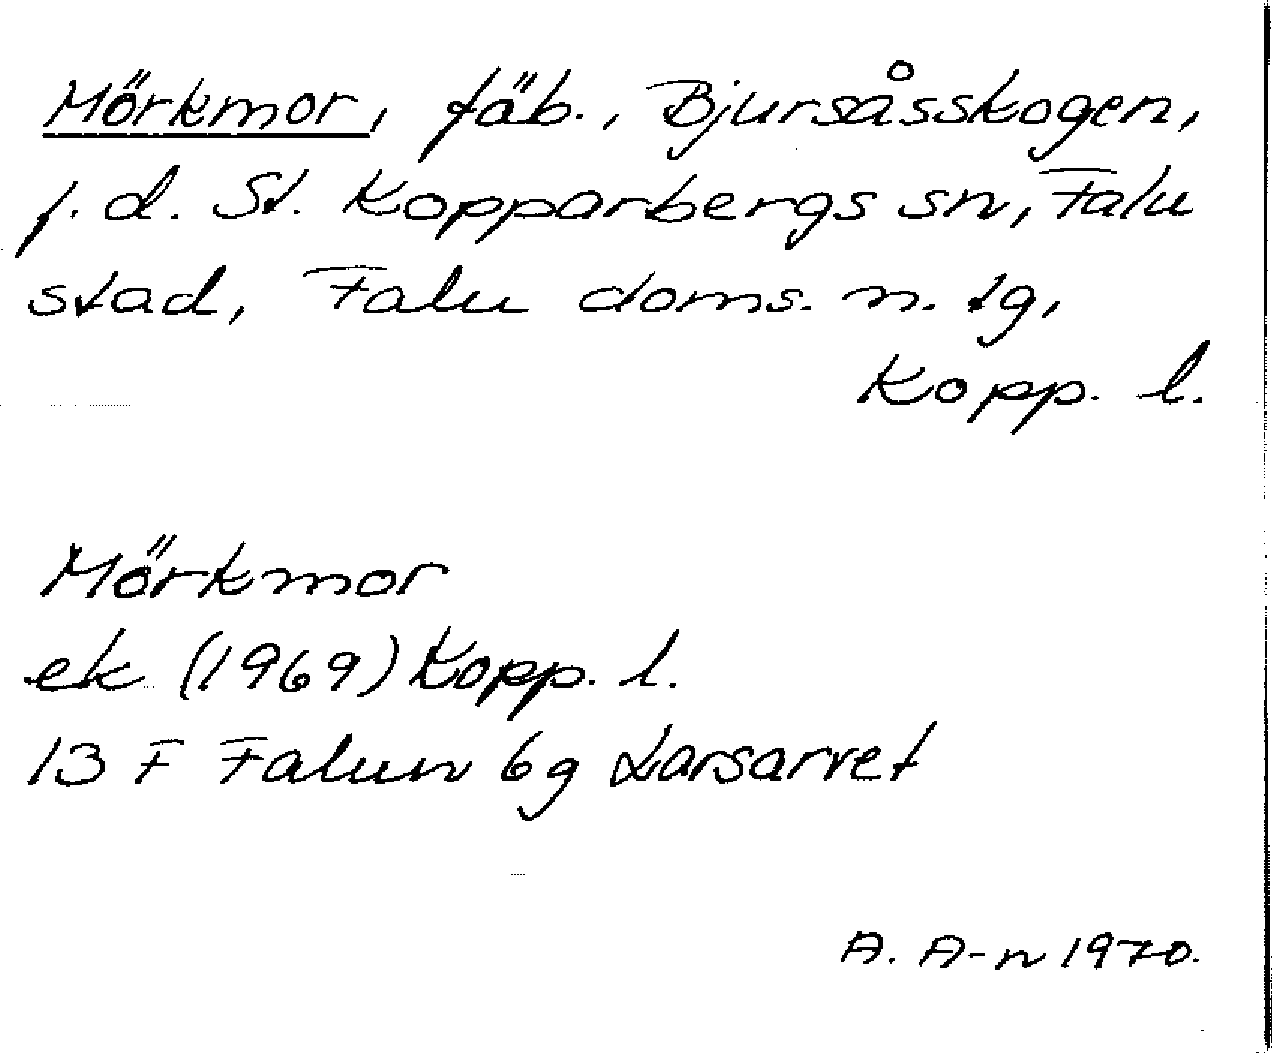 Mörkmor, fäb., Bjursåsskogen,
f. d. St. Kopparbergs sn, Falu
stad, Falu doms. n. tg,
Kopp. l.
Mörkmor
ek (1969) Kopp. l.
13 F Falun 6g Larsarvet
A. A-n 1970.